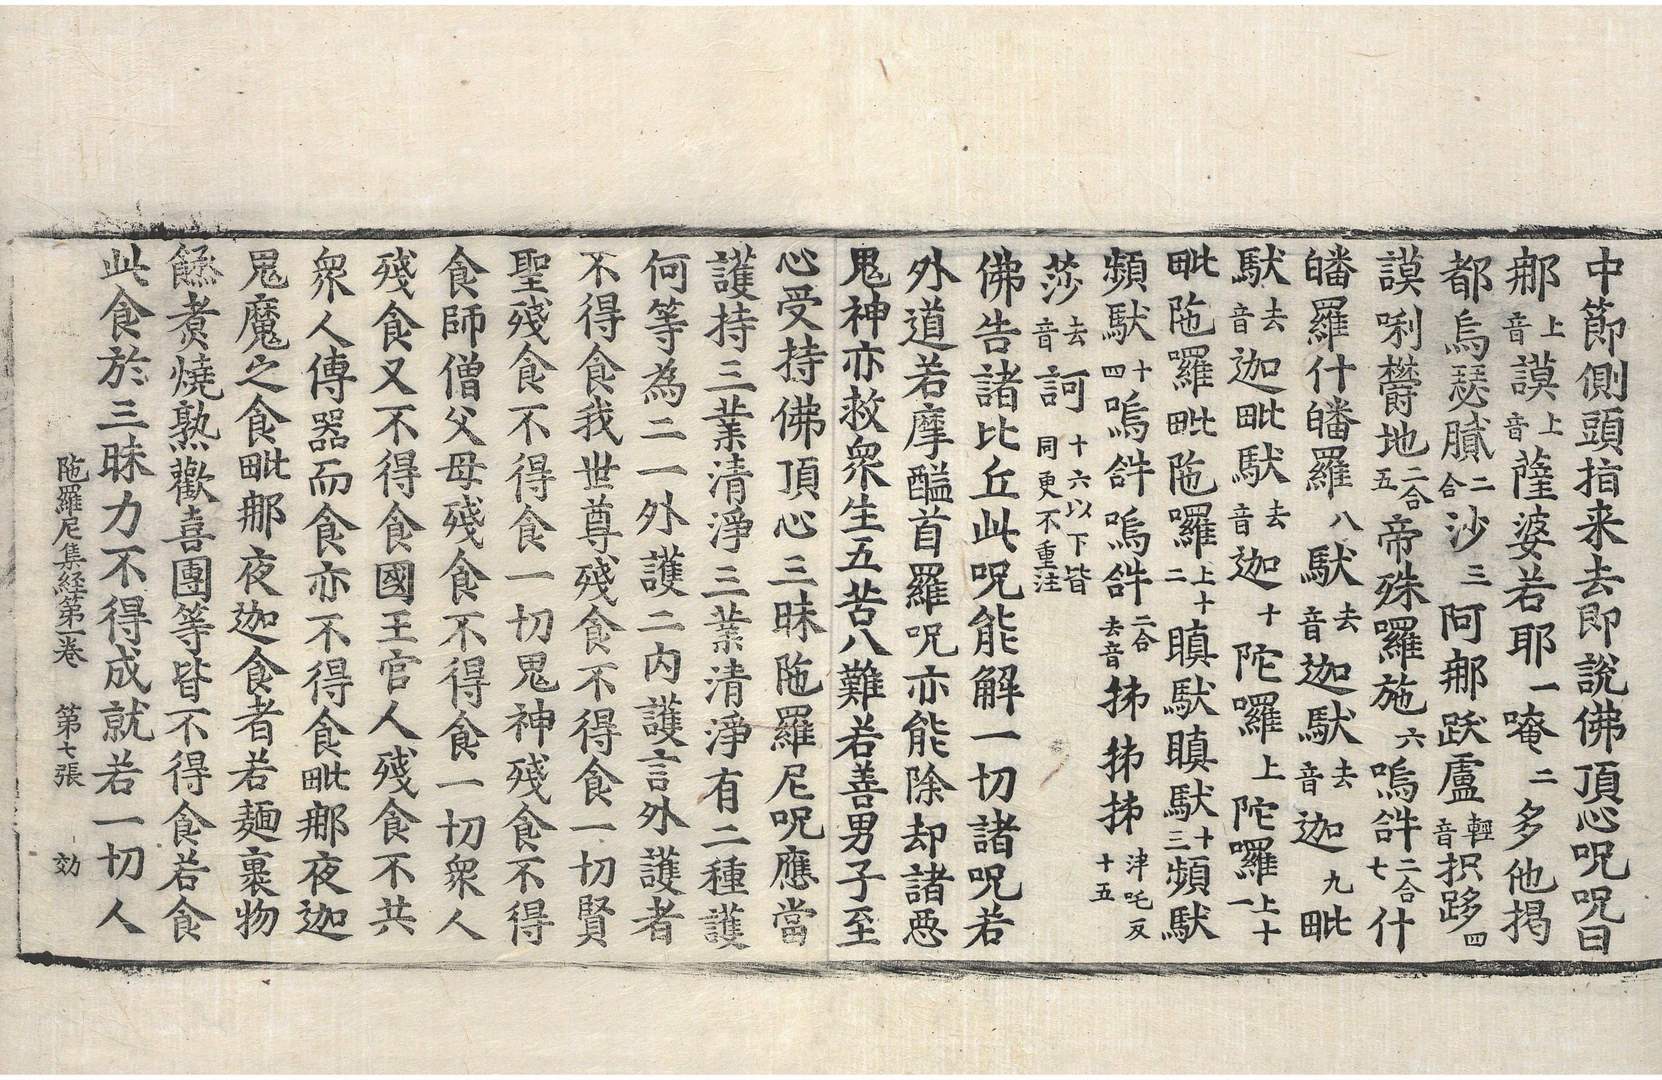 中節側頭指来去即說佛頂心呪呪曰
那上音謨上音薩婆若耶一唵二多他揭
都烏瑟膩二合沙三阿那跃盧輕音抧跢四
謨唎欝地二合五帝殊羅施六嗚𤙖二合七什
皤羅什皤羅八馱去音迦馱去音迦九毗
馱去音迦毗馱去音迦十陀囉上陀囉上十一
毗陁囉毗陁囉上十二瞋馱瞋馱十三頻馱
頻馱十四嗚𤙖嗚𤙖二合去音𢂁𢂁𢂁津吒反十五
莎去音訶十六以下皆同更不重注
佛告諸比丘此呪能解一切諸呪若
外道若摩醯首羅呪亦能除却諸惡
鬼神亦救衆生五苦八難若善男子至
心受持佛頂心三昧陁羅尼呪應當
護持三業清淨三業清淨有二種護
何等為二一外護二内護言外護者
不得食我世尊殘食不得食一切賢
聖殘食不得食一切鬼神殘食不得
食師僧父母殘食不得食一切衆人
殘食又不得食國王官人殘食不共
衆人傳器而食亦不得食毗那夜迦
鬼魔之食毗那夜迦食者若麵裹物
餻煮燒熟歡喜團等皆不得食若食
此食於三昧力不得成就若一切人
陁羅尼集経第一卷 第七張 効